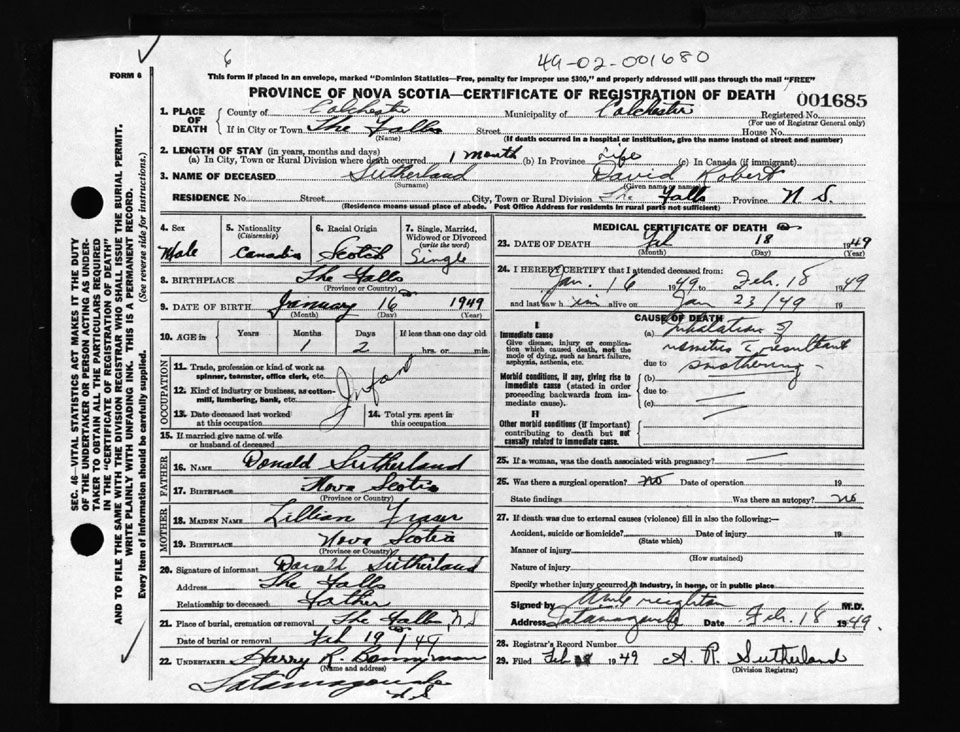 6
49-02-001680
FORM 6
This form if placed in an envelope, marked "Dominion Statistics—Free, penalty for improper use $300," and properly addressed will pass through the mail "FREE"
PROVINCE OF NOVA SCOTIA—CERTIFICATE OF REGISTRATION OF DEATH
001685
1. PLACE OF DEATH
County of Colchester Municipality of Colchester Registered No.
(For use of Registrar General only)
If in City or Town The Falls Street House No.
(Name) (If death occurred in a hospital or institution, give the name instead of street and number)
2. LENGTH OF STAY (in years, months and days)
(a) In City, Town or Rural Division where death occurred 1 month (b) In Province Life (c) In Canada (if immigrant)
3. NAME OF DECEASED Sutherland David Robert
(Surname) (Given name or names)
RESIDENCE No. Street City, Town or Rural Division The Falls Province N.S.
(Residence means usual place of abode. Post Office Address for residents in rural parts not sufficient)
4. Sex
Male
5. Nationality
(Citizenship)
Canadian
6. Racial Origin
Scotch
7. Single, Married, Widowed or Divorced
(write the word)
Single
8. BIRTHPLACE The Falls
(Province or Country)
9. DATE OF BIRTH January 16 1949
(Month) (Day) (Year)
10. AGE in
Years Months Days If less than one day old
1 2 hrs. or min.
OCCUPATION
11. Trade, profession or kind of work as spinner, teamster, office clerk, etc.
12. Kind of industry or business, as cotton-mill, lumbering, bank, etc.
Infant
13. Date deceased last worked at this occupation
14. Total yrs. spent in this occupation
15. If married give name of wife or husband of deceased
FATHER
16. NAME Donald Sutherland
17. BIRTHPLACE Nova Scotia
(Province or Country)
MOTHER
18. MAIDEN NAME Lillian Fraser
19. BIRTHPLACE Nova Scotia
(Province or Country)
20. Signature of informant Donald Sutherland
Address The Falls
Relationship to deceased Father
21. Place of burial, cremation or removal The Falls, N.S
Date of burial or removal Feb 19/49
22. UNDERTAKER Harry R Bannerman
(Name and address)
Tatamagouche
N S
MEDICAL CERTIFICATE OF DEATH
23. DATE OF DEATH Feb 18 1949
(Month) (Day) (Year)
24. I HEREBY CERTIFY that I attended deceased from:
Jan. 16 1949 to Feb. 18 1949
and last saw him alive on Jan 23/49 19
CAUSE OF DEATH
I
Immediate cause
Give disease, injury or complication which caused death, not the mode of dying, such as heart failure, asphyxia, asthenia, etc.
(a) Inhalation of
vomitus c resultant
due to smothering
Morbid conditions, if any, giving rise to immediate cause (stated in order proceeding backwards from immediate cause).
(b)
due to
(c)
II
Other morbid conditions (if important) contributing to death but not causally related to immediate cause.
25. If a woman, was the death associated with pregnancy?
26. Was there a surgical operation? No Date of operation 19
State findings Was there an autopsy? No
27. If death was due to external causes (violence) fill in also the following:—
Accident, suicide or homicide? Date of injury 19
(State which)
Manner of injury
(How sustained)
Nature of injury
Specify whether injury occurred in industry, in home, or in public place
Signed by Creighton M.D.
Address Tatamagouche Date Feb. 18 1949.
28. Registrar's Record Number
29. Filed Feb 1949 A. R. Sutherland
(Division Registrar)
SEC. 46—VITAL STATISTICS ACT MAKES IT THE DUTY
OF THE UNDERTAKER OR PERSON ACTING AS UNDERTAKER TO OBTAIN ALL THE PARTICULARS REQUIRED
IN THE "CERTIFICATE OF REGISTRATION OF DEATH"
AND TO FILE THE SAME WITH THE DIVISION REGISTRAR WHO SHALL ISSUE THE BURIAL PERMIT.
WRITE PLAINLY WITH UNFADING INK. THIS IS A PERMANENT RECORD.
Every item of information should be carefully supplied. (See reverse side for instructions.)